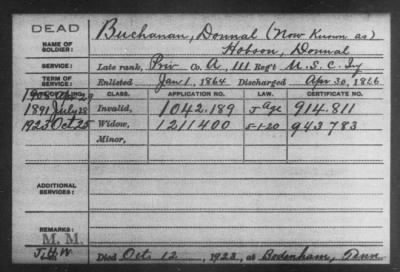 DEAD
NAME OF SOLDIER:
Buchanan, Donnal (Now Known as)
Hobson, Donnal
SERVICE:
Late rank, Priv Co. A, 111 Reg't U.S.C. Inf
TERM OF SERVICE:
Enlisted Jan 1, 1864 Discharged Apr 30, 1866
DATE OF FILING. CLASS. APPLICATION NO. LAW. CERTIFICATE NO.
1891 July 28 Invalid, 1042.189 Age 914.811
1923 Oct 25 Widow, 1211400 5-1-20 943783
Minor,
ADDITIONAL SERVICES:
REMARKS:
M. M.
Died Oct 12, 1923, at Bodenham, Tenn